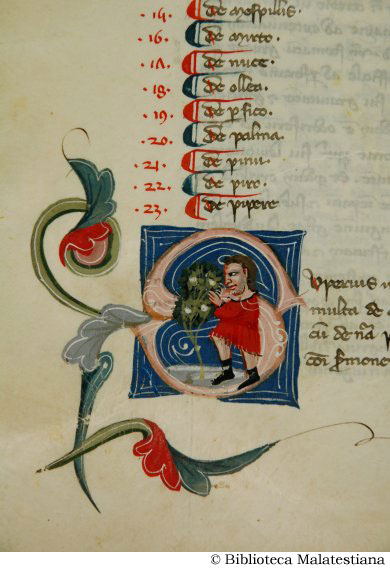 ·14· de mespillis
·16· de mirto
·17· de nuce
·18· de oliva
·19· de p̱sico
·20· de palma
·21· de pinu
·22· de piro
·23· de pipere
Superius
multa de
de nr̄a
sermone
© Biblioteca Malatestiana